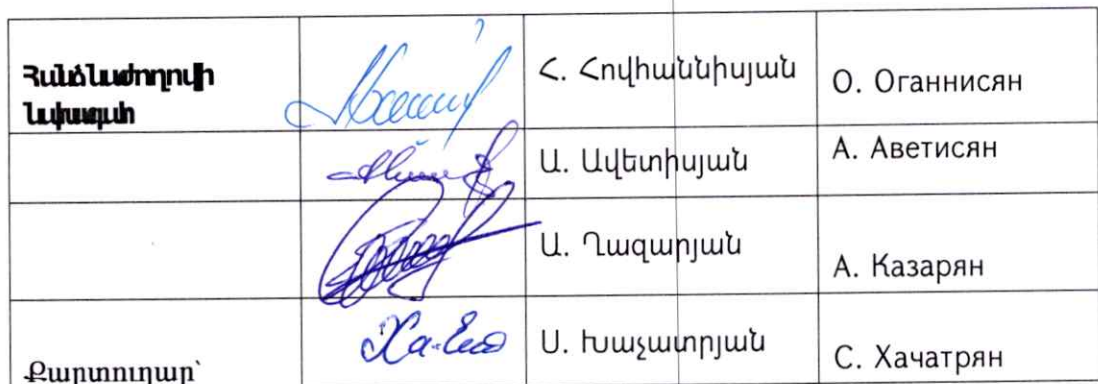 Հանձնաժողովի
նախագահ
Հ. Հովհաննիսյան
О. Оганнисян
Ա. Ավետիսյան
А. Аветисян
Ա. Ղազարյան
А. Казарян
Քարտուղար՝
Ս. Խաչատրյան
С. Хачатрян